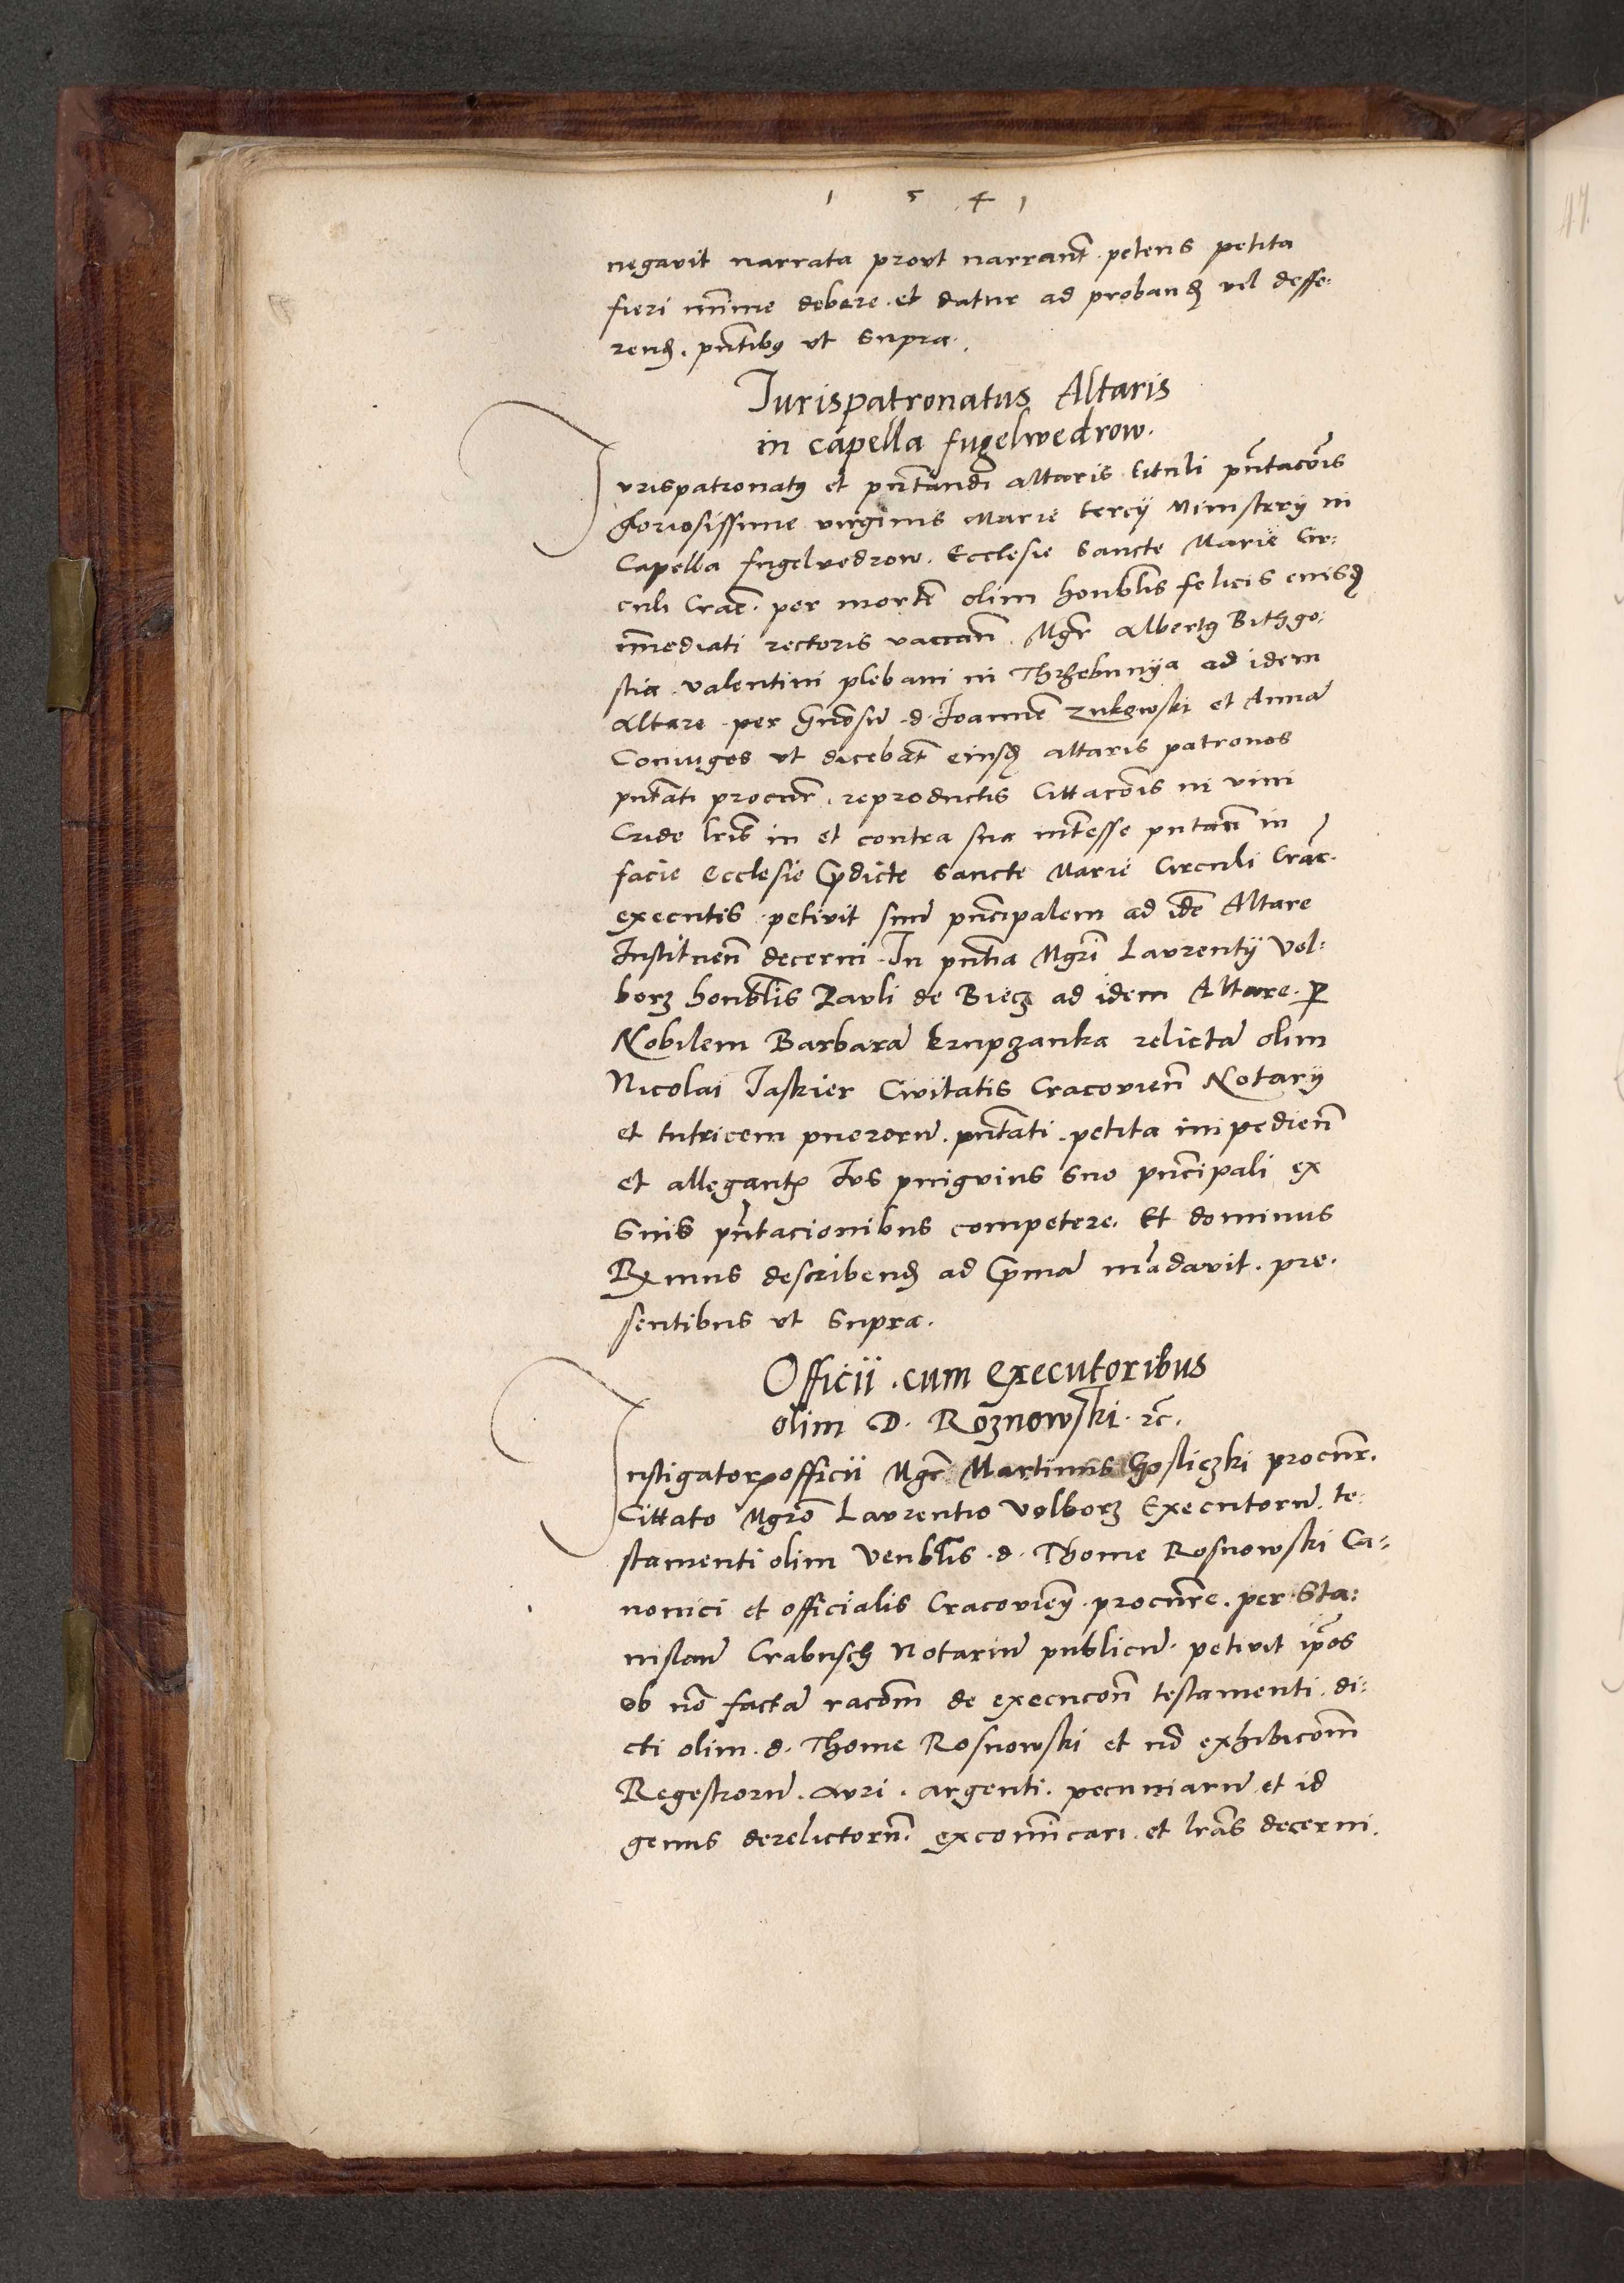 1 5 4 1
negavit narrata prout narrant̃ . petens petita
fieri mĩime debere . et datur ad proband̃ vel deffe:
rend̃ . pñtibꝯ vt supra .
Iurispatronatus Altaris
in capella fugelwedrow .
Iurispatronatꝯ et pñtandi altaris tituli pñtacõis
gloriosissime virginis Marie tercij Ministerij in
Capella fugelvedrow . Ecclesie Sancte Marie Cir:
culi Crac̃ . per mortẽ olim honblis felicis eiusd̃
im̃ediati rectoris vaccan̄ . Mgr̃ Albertꝯ Bithgo:
stia . valentini plebani in Thrzebunya ad idem
altare . per Gñosũ . d . Joannẽ Zukowski et Annã
Coniuges vt dicebãt eiusd̃ altaris patronos
pñtati procur̃ . reproductis Cittacõis in vim
Cride lr̃is in et contra sua int̃esse putan̄ in
facie Ecclesie p̃dicte Sancte Marie Circuli Crac̃ .
executis . petivit suũ pñcipalem ad idẽ Altare
Instituen̄ decerni . In pñtia Mgr̃i Laurentij Vol:
borz honblis Pauli de Biecz ad idem Altare . ꝑ
Nobilem Barbarã krupczanka relictã olim
Nicolai Jaskier Civitatis Cracovien̄ Notarij
et tutricem puerorũ . pñtati . petita impedien̄
et allegantꝭ Ius pinguius suo pñcipali ex
Suis pñtacionibus competere . Et dominus
Rx̃mus describend̃ ad p̃mã mãdavit . pre:
sentibus vt supra .
Officii . cum executoribus
olim D . Roznowski . ꝛc̃ .
Instigator officii Mgr̃ Martinus Gosliczki procur̃ .
Cittato Mgrõ Laurentio Volborz Executorũ . te:
stamenti olim Venblis . d . Thome Rosnowski Ca:
nonici et officialis Cracovien̄ . procur̃e . per Sta:
nislaũ Crabusch Notariũ publicũ . petivit ip̃os
ob nõ factã racõm de execucõn̄ testamenti . di:
cti olim . d . Thome Rosnowski et nõ exhibicõm
Regestrorũ . auri . argenti . pecuniarũ et id
genus derelictorũ . excom̃icari . et lr̃as decerni .